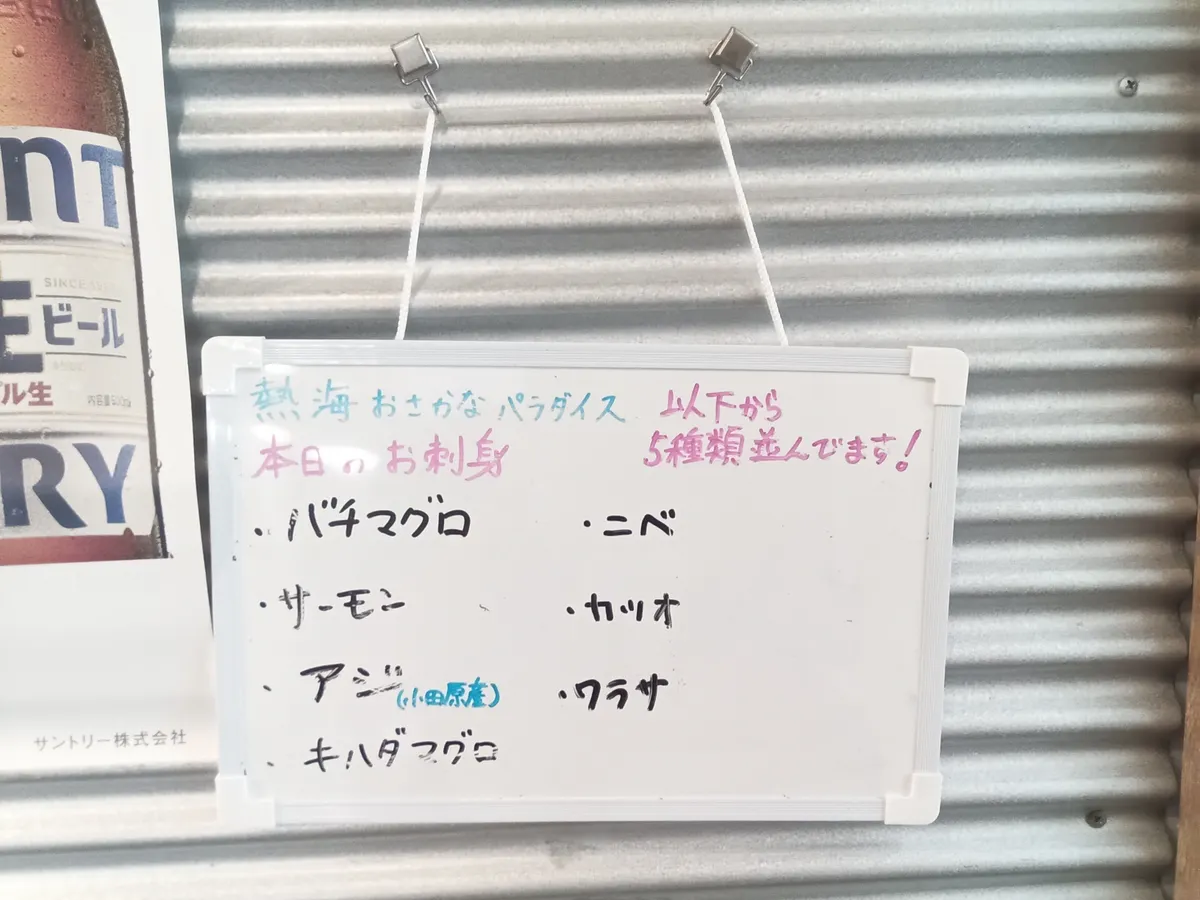 nT
SINCE
生
ビール
ル生
RY
サントリー株式会社
熱海おさかなパラダイス
本日のお刺身
以下から
5種類並んでます!
・バチマグロ
・サーモン
・アジ(小田原産)
・キハダマグロ
・ニベ
・カツオ
・ワラサ